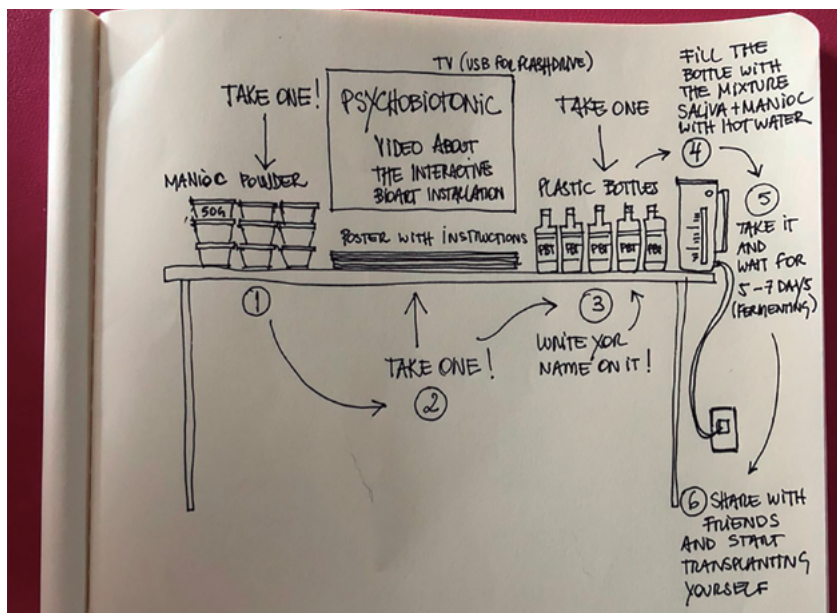 TV (USB FOR FLASHDRIVE)
TAKE ONE!
PSYCHOBIOTONIC
VIDEO ABOUT
THE INTERACTIVE
BIOART INSTALLATION
MANIOC POWDER
50G
POSTER WITH INSTRUCTIONS
TAKE ONE
PLASTIC BOTTLES
PBT PBT PBT PBT PBT
FILL THE
BOTTLE WITH
THE MIXTURE
SALIVA+MANIOC
WITH HOT WATER
4
5
TAKE IT
AND
WAIT FOR
5-7 DAYS
(FERMENTING)
1
TAKE ONE!
2
3
WRITE YOR
NAME ON IT!
6 SHARE WITH
FRIENDS
AND START
TRANSPLANTING
YOURSELF